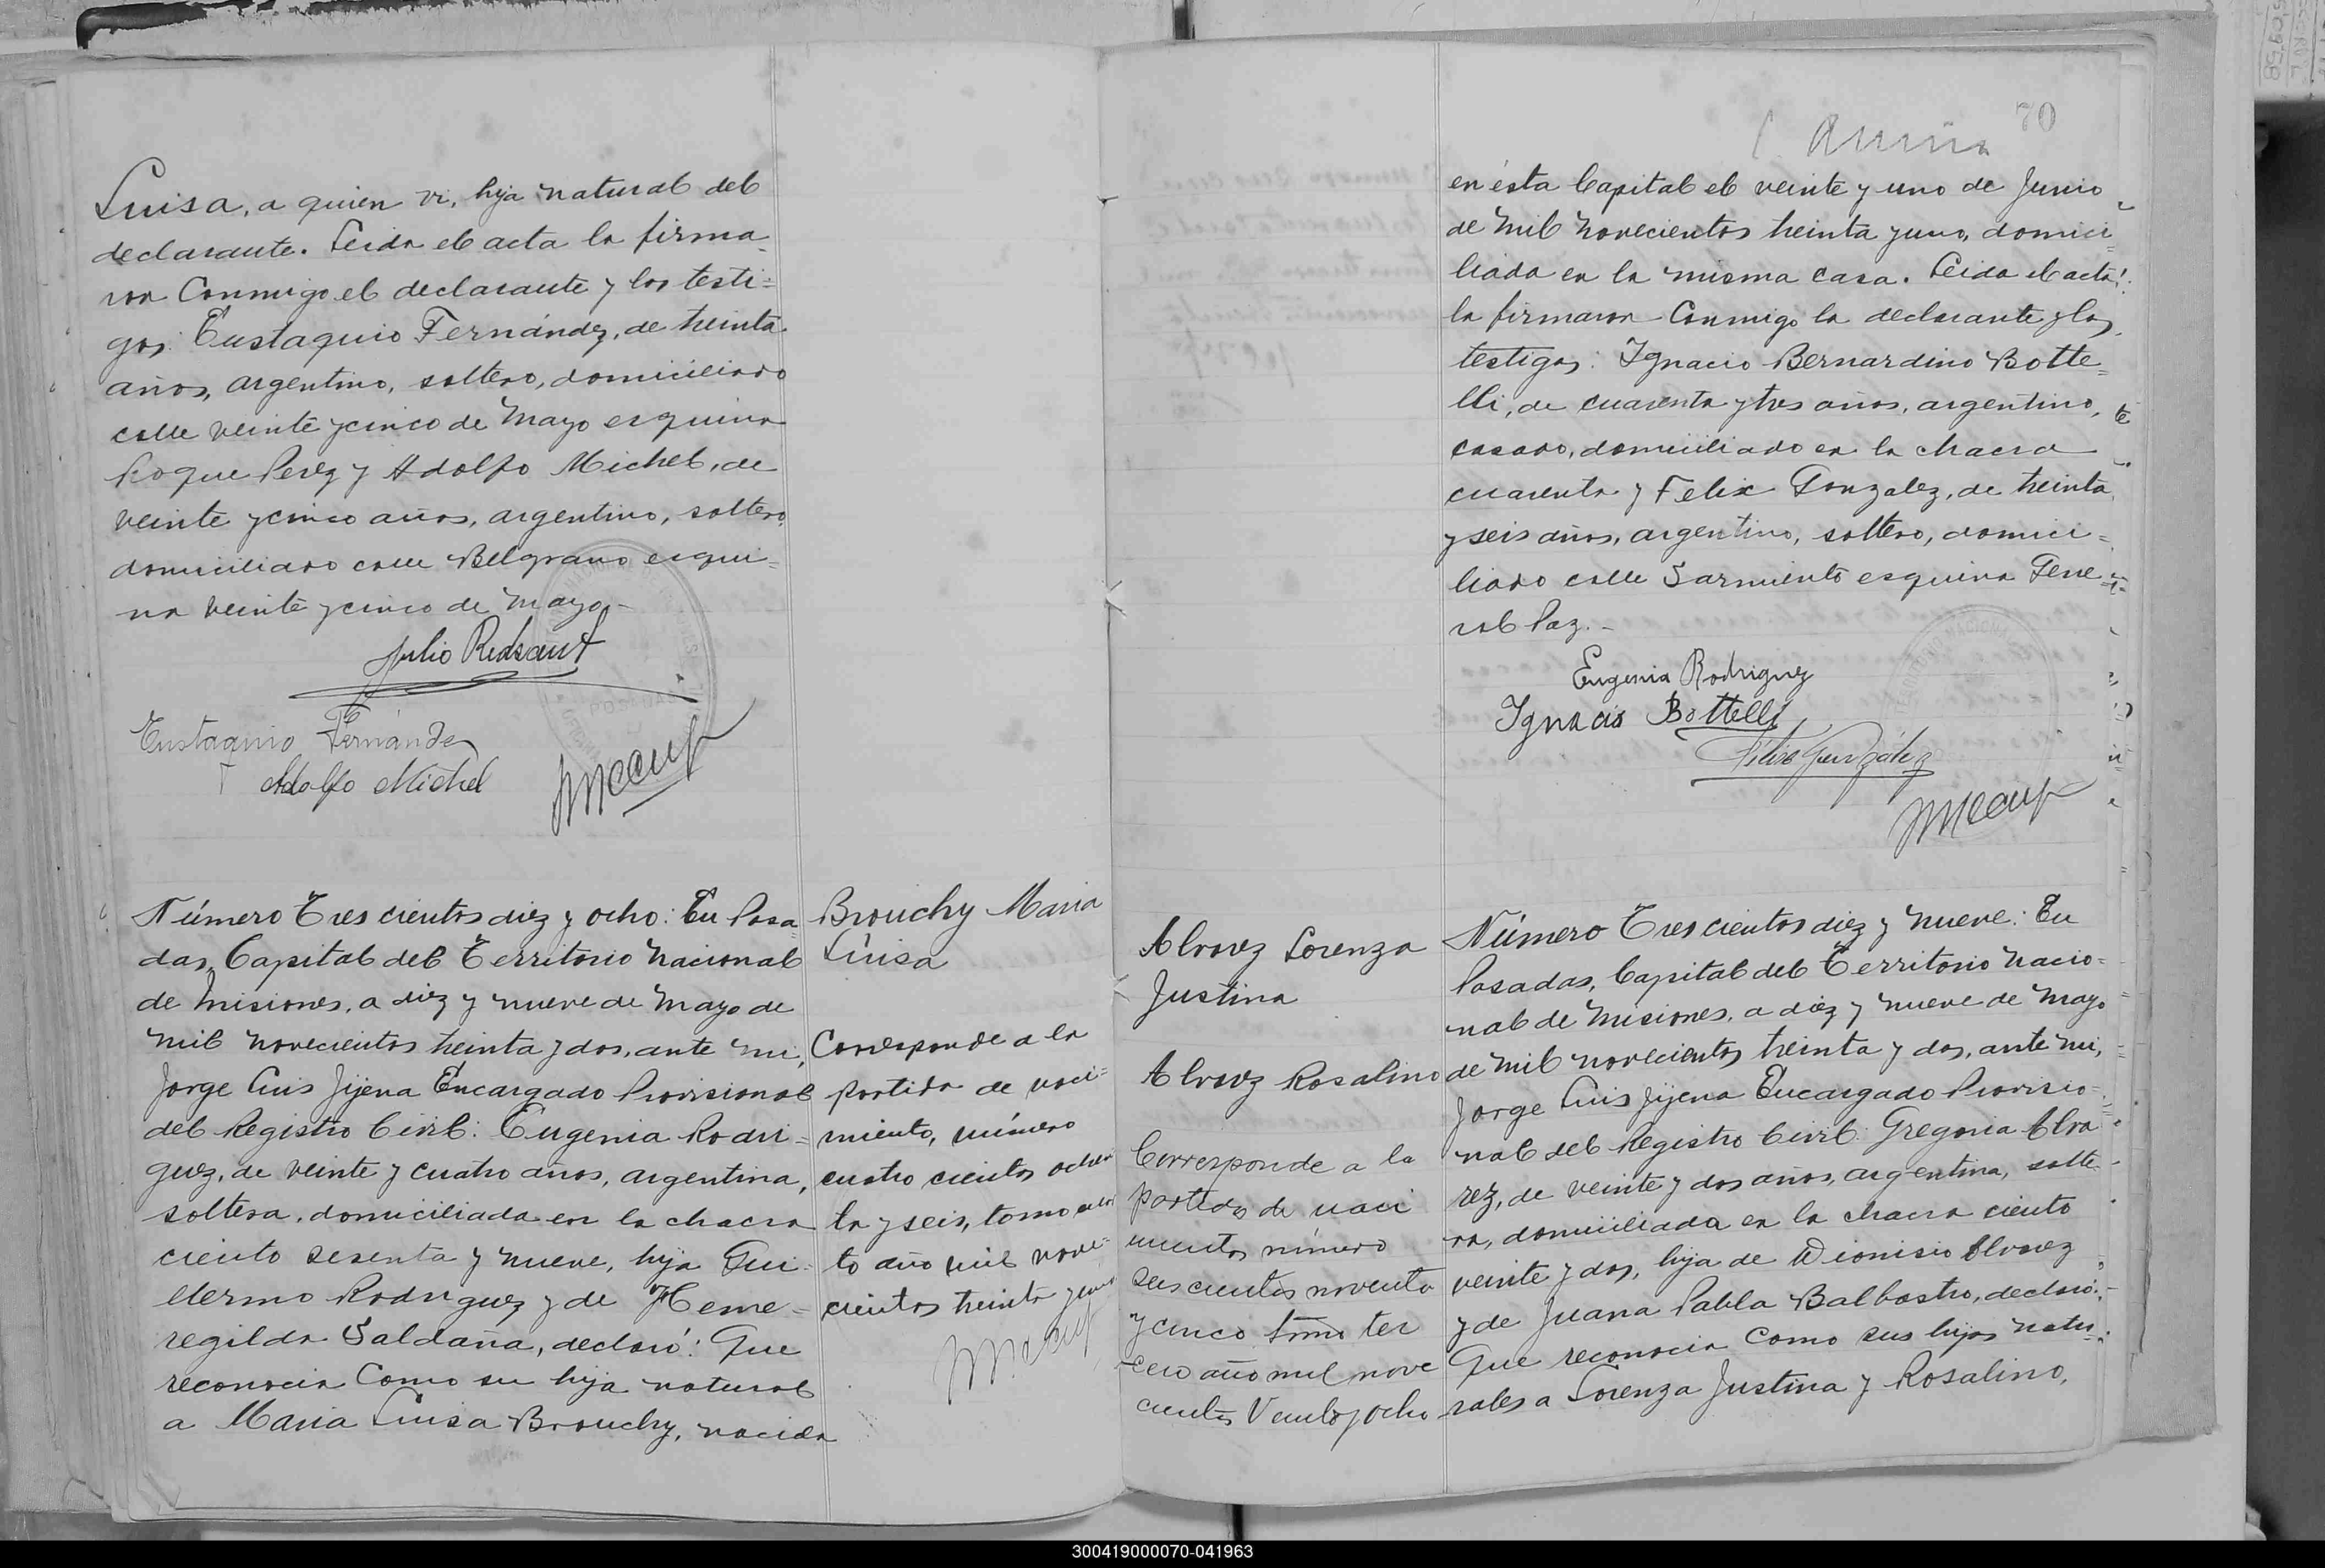 Luisa, a quien vi, hija natural del
declarante. Leida el acta la firma=
ron Conmigo el declarante y los testi=
gos: Eustaquio Fernández, de treinta
años, argentino, soltero, domiciliado
calle veinte y cinco de Mayo esquina
Roque Perez y Adolfo Michel, de
veinte y cinco años, argentino, soltero,
domiciliado calle Belgrano esqui=
na veinte y cinco de Mayo.-
Julio
Eustaquio Fernández
Adolfo Michel
Número Trescientos diez y ocho: En Posa=
das, Capital del Territorio Nacional
de Misiones, a diez y nueve de Mayo de
mil novecientos treinta y dos, ante mi,
Jorge Luis Jijena Encargado Provisional
del Registro Civil: Eugenia Rodri=
guez, de veinte y cuatro años, argentina,
soltera, domiciliada en la chacra
ciento sesenta y nueve, hija Gui=
llermo Rodriguez y de Heme=
regilda Saldaña, declaró: Que
reconocia Como su hija natural
a Maria Luisa Brouchy, nacida
Brouchy Maria
Luisa
Corresponde a la
partida de naci=
miento, número
cuatro cientos ochen
ta y seis, tomo
to año mil nove=
cientos treinta y uno
70
en ésta Capital el veinte y uno de Junio
de mil novecientos treinta y uno, domici=
liada en la misma casa. Leida el acta
la firmaron Conmigo la declarante y los
testigos: Ignacio Bernardino Botte=
lli, de cuarenta y tres años, argentino,
casado, domiciliado en la chacra
cuarenta y Felix Gonzalez, de treinta
y seis años, argentino, soltero, domici=
liado calle Sarmiento esquina Gene=
ral Paz.-
Eugenia Rodriguez
Ignacio Bottelli
Felix González
Alvarez Lorenza
Justina
Alvarez Rosalino
Corresponde a la
partida de naci
miento número
seiscientos noventa
y cinco tomo ter
cero año mil nove
cientos Veinte y ocho
Número Trescientos diez y nueve: En
Posadas, Capital del Territorio Nacio=
nal de Misiones, a diez y nueve de Mayo
de mil novecientos treinta y dos, ante mi,
Jorge Luis Jijena Encargado Provisio=
nal del Registro Civil: Gregoria Alva
rez, de veinte y dos años, argentina, solte=
ra, domiciliada en la chacra ciento
veinte y dos, hija de Dionisio Alvarez
y de Juana Pabla Balbastro, declaró:
Que reconocia Como sus hijos natu=
rales a Lorenza Justina y Rosalino,
300419000070-041963